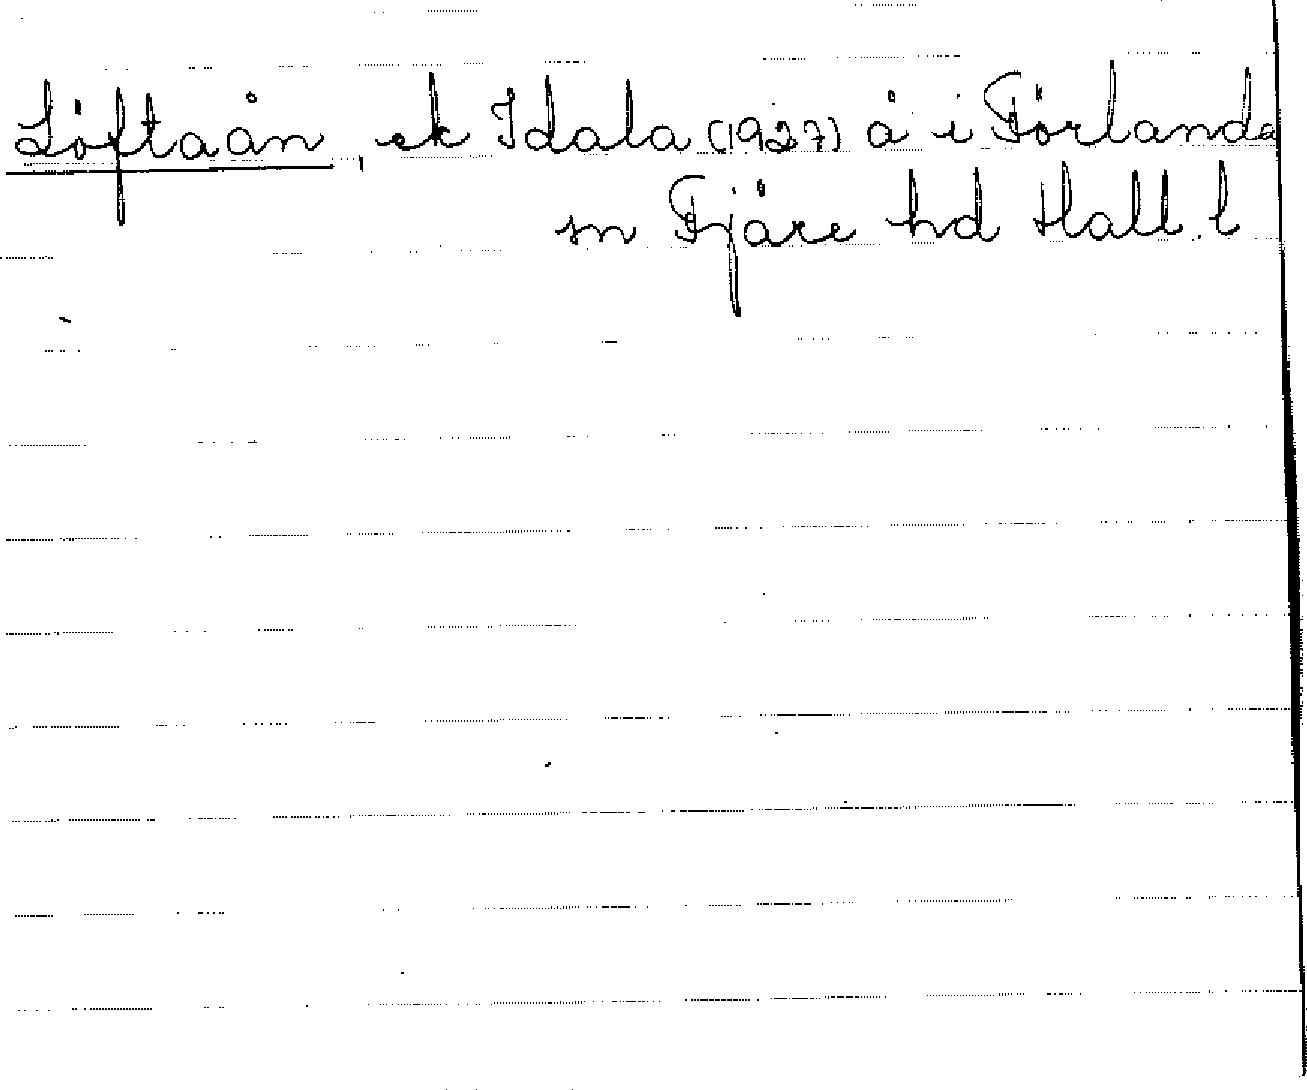 Löftaån, ek Idala (1927) å i Förlanda
sn Fjäre hd Hall. l